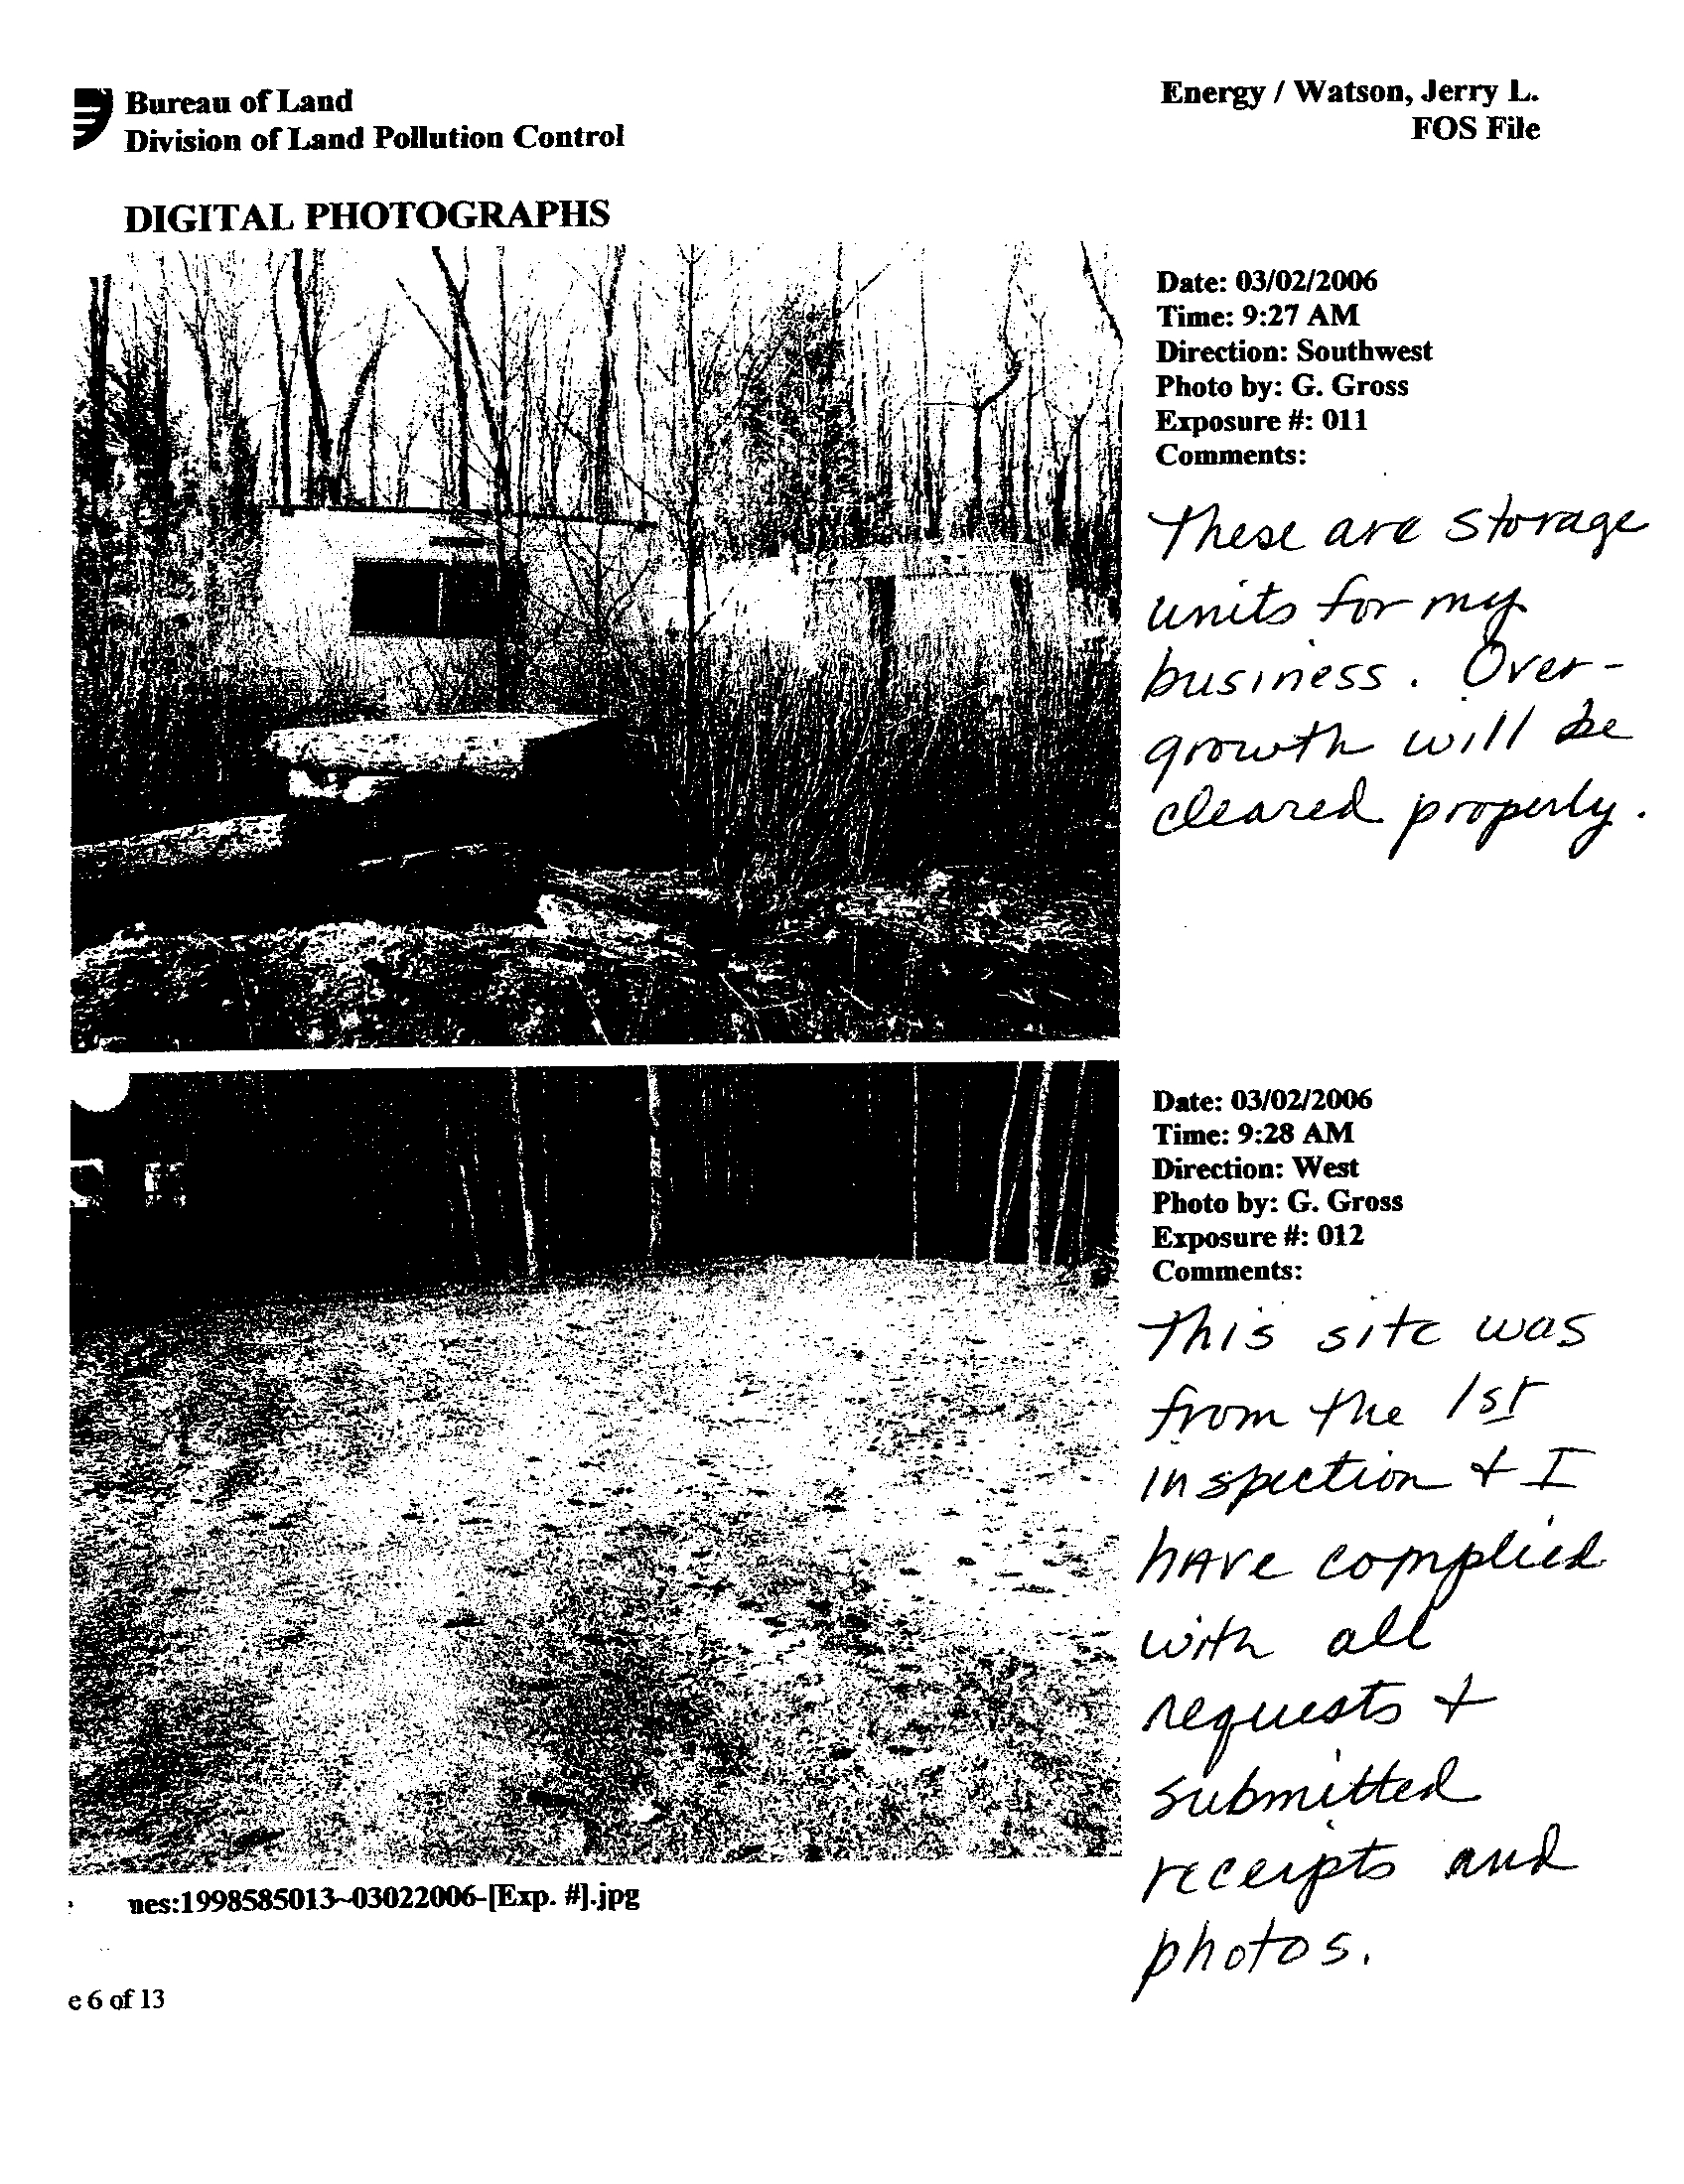 Bureau of Land
Division of Land Pollution Control
Energy / Watson, Jerry L.
FOS File
DIGITAL PHOTOGRAPHS
Date: 03/02/2006
Time: 9:27 AM
Direction: Southwest
Photo by: G. Gross
Exposure #: 011
Comments:
These are storage
units for my
business. Over-
growth will be
cleared properly.
Date: 03/02/2006
Time: 9:28 AM
Direction: West
Photo by: G. Gross
Exposure #: 012
Comments:
This site was
from the 1st
inspection + I
have complied
with all
requests +
submitted
receipts and
photos.
nes:1998585013~03022006-[Exp. #].jpg
e 6 of 13